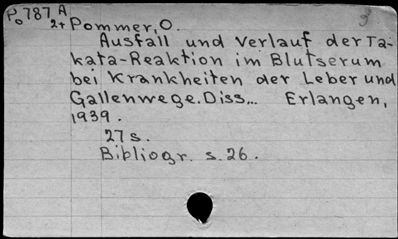 Po787 A
2+ Pommer, O.
Ausfall und Verlauf der Ta-
kata-Reaktion im Blutserum
bei Krankheiten der Leber und
Gallenwege. Diss... Erlangen,
1939.
27 s.
Bibliogr. s. 26.